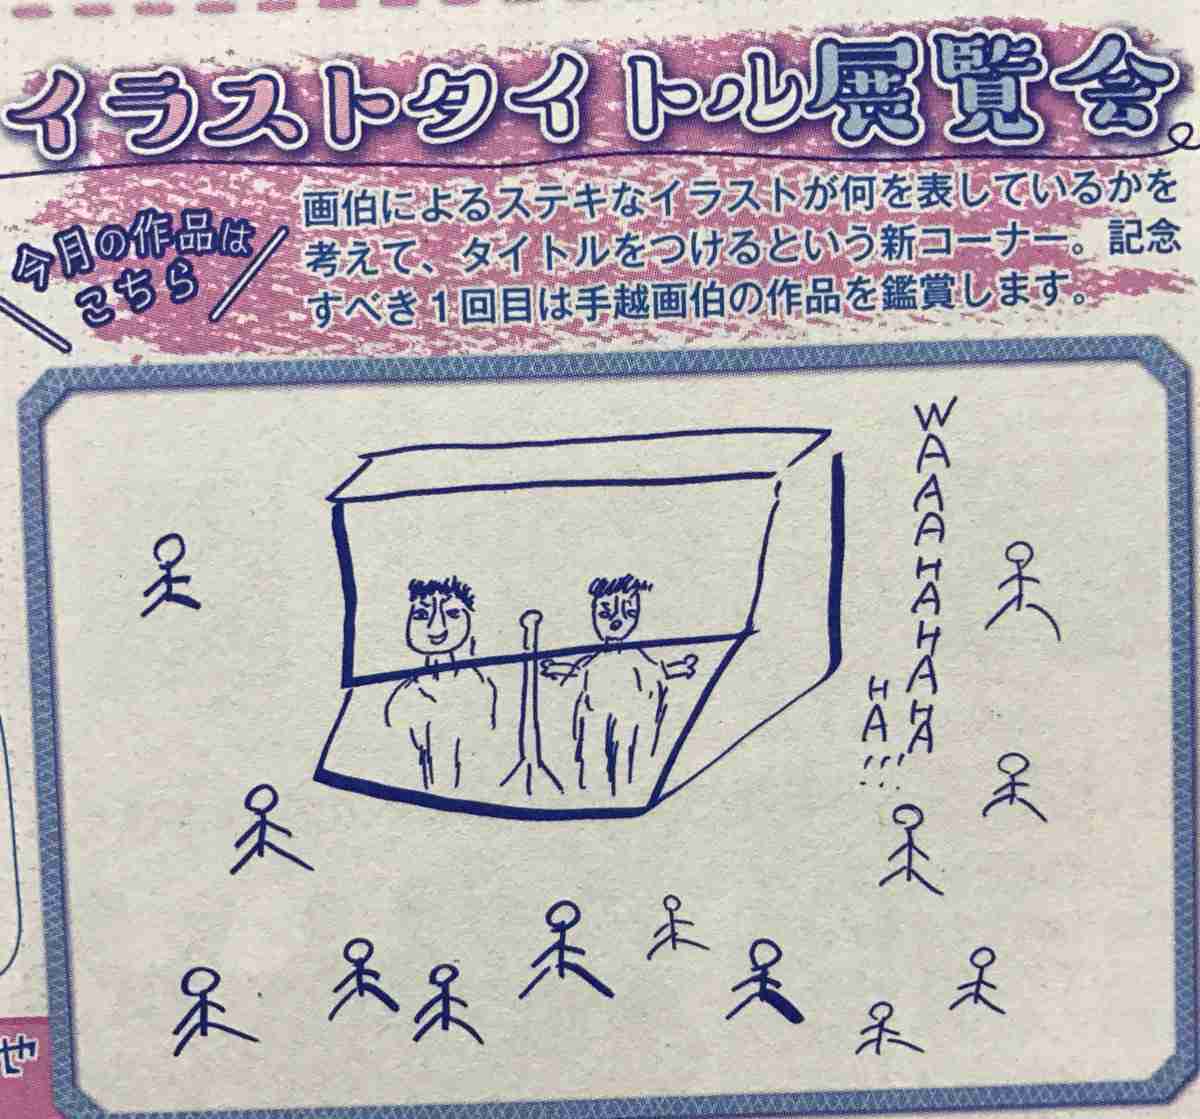 イラストタイトル展覧会
今月の作品は
こちら
画伯によるステキなイラストが何を表しているかを
考えて、タイトルをつけるという新コーナー。記念
すべき1回目は手越画伯の作品を鑑賞します。
WAAAHAHAHA
HA!!!
せ